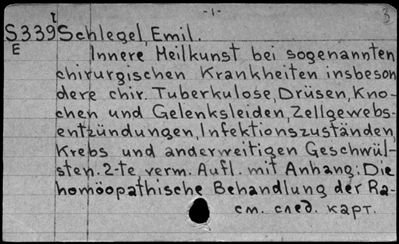 -1-
S339 Schlegel, Emil.
E Innere Heilkunst bei sogenannten
chirurgischen Krankheiten insbeson
dere chir. Tuberkulose, Drüsen, Kno-
chen und Gelenksleiden, Zellgewebs-
entzündungen, Infektionszuständen,
Krebs und anderweitigen Geschwül-
sten. 2-te, verm. Aufl. mit Anhang: Die
homöopathische Behandlung der Ra-
см. след. карт.